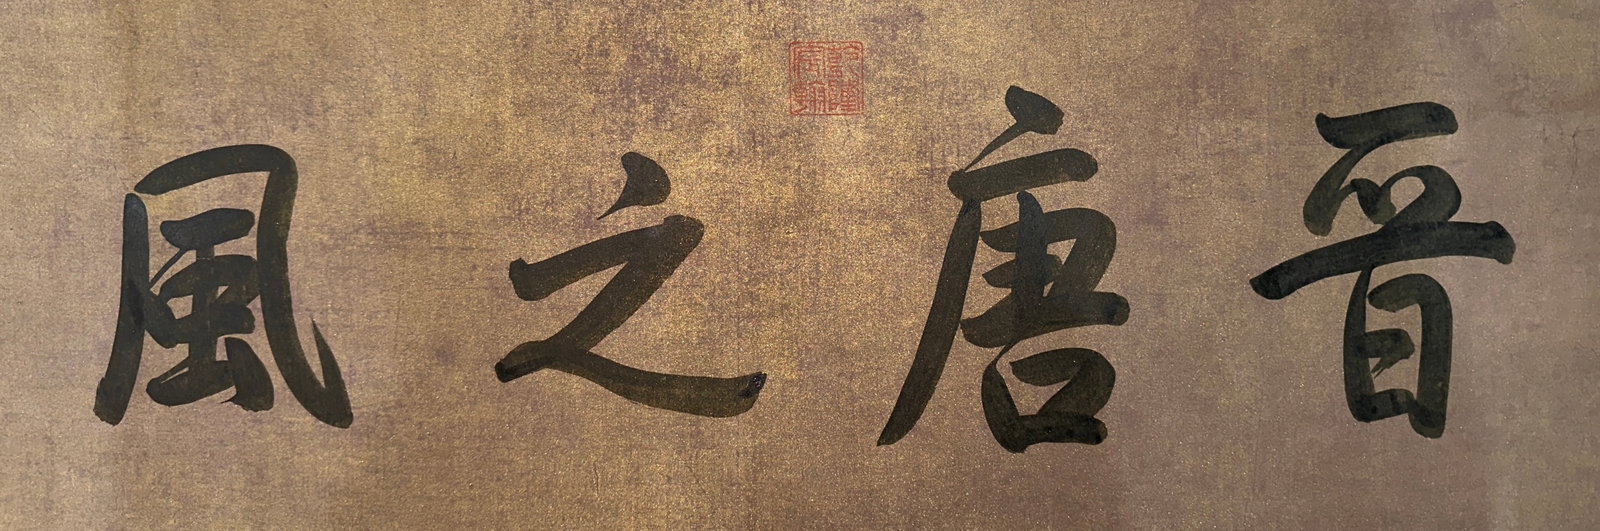 晉唐之風
乾隆宸翰